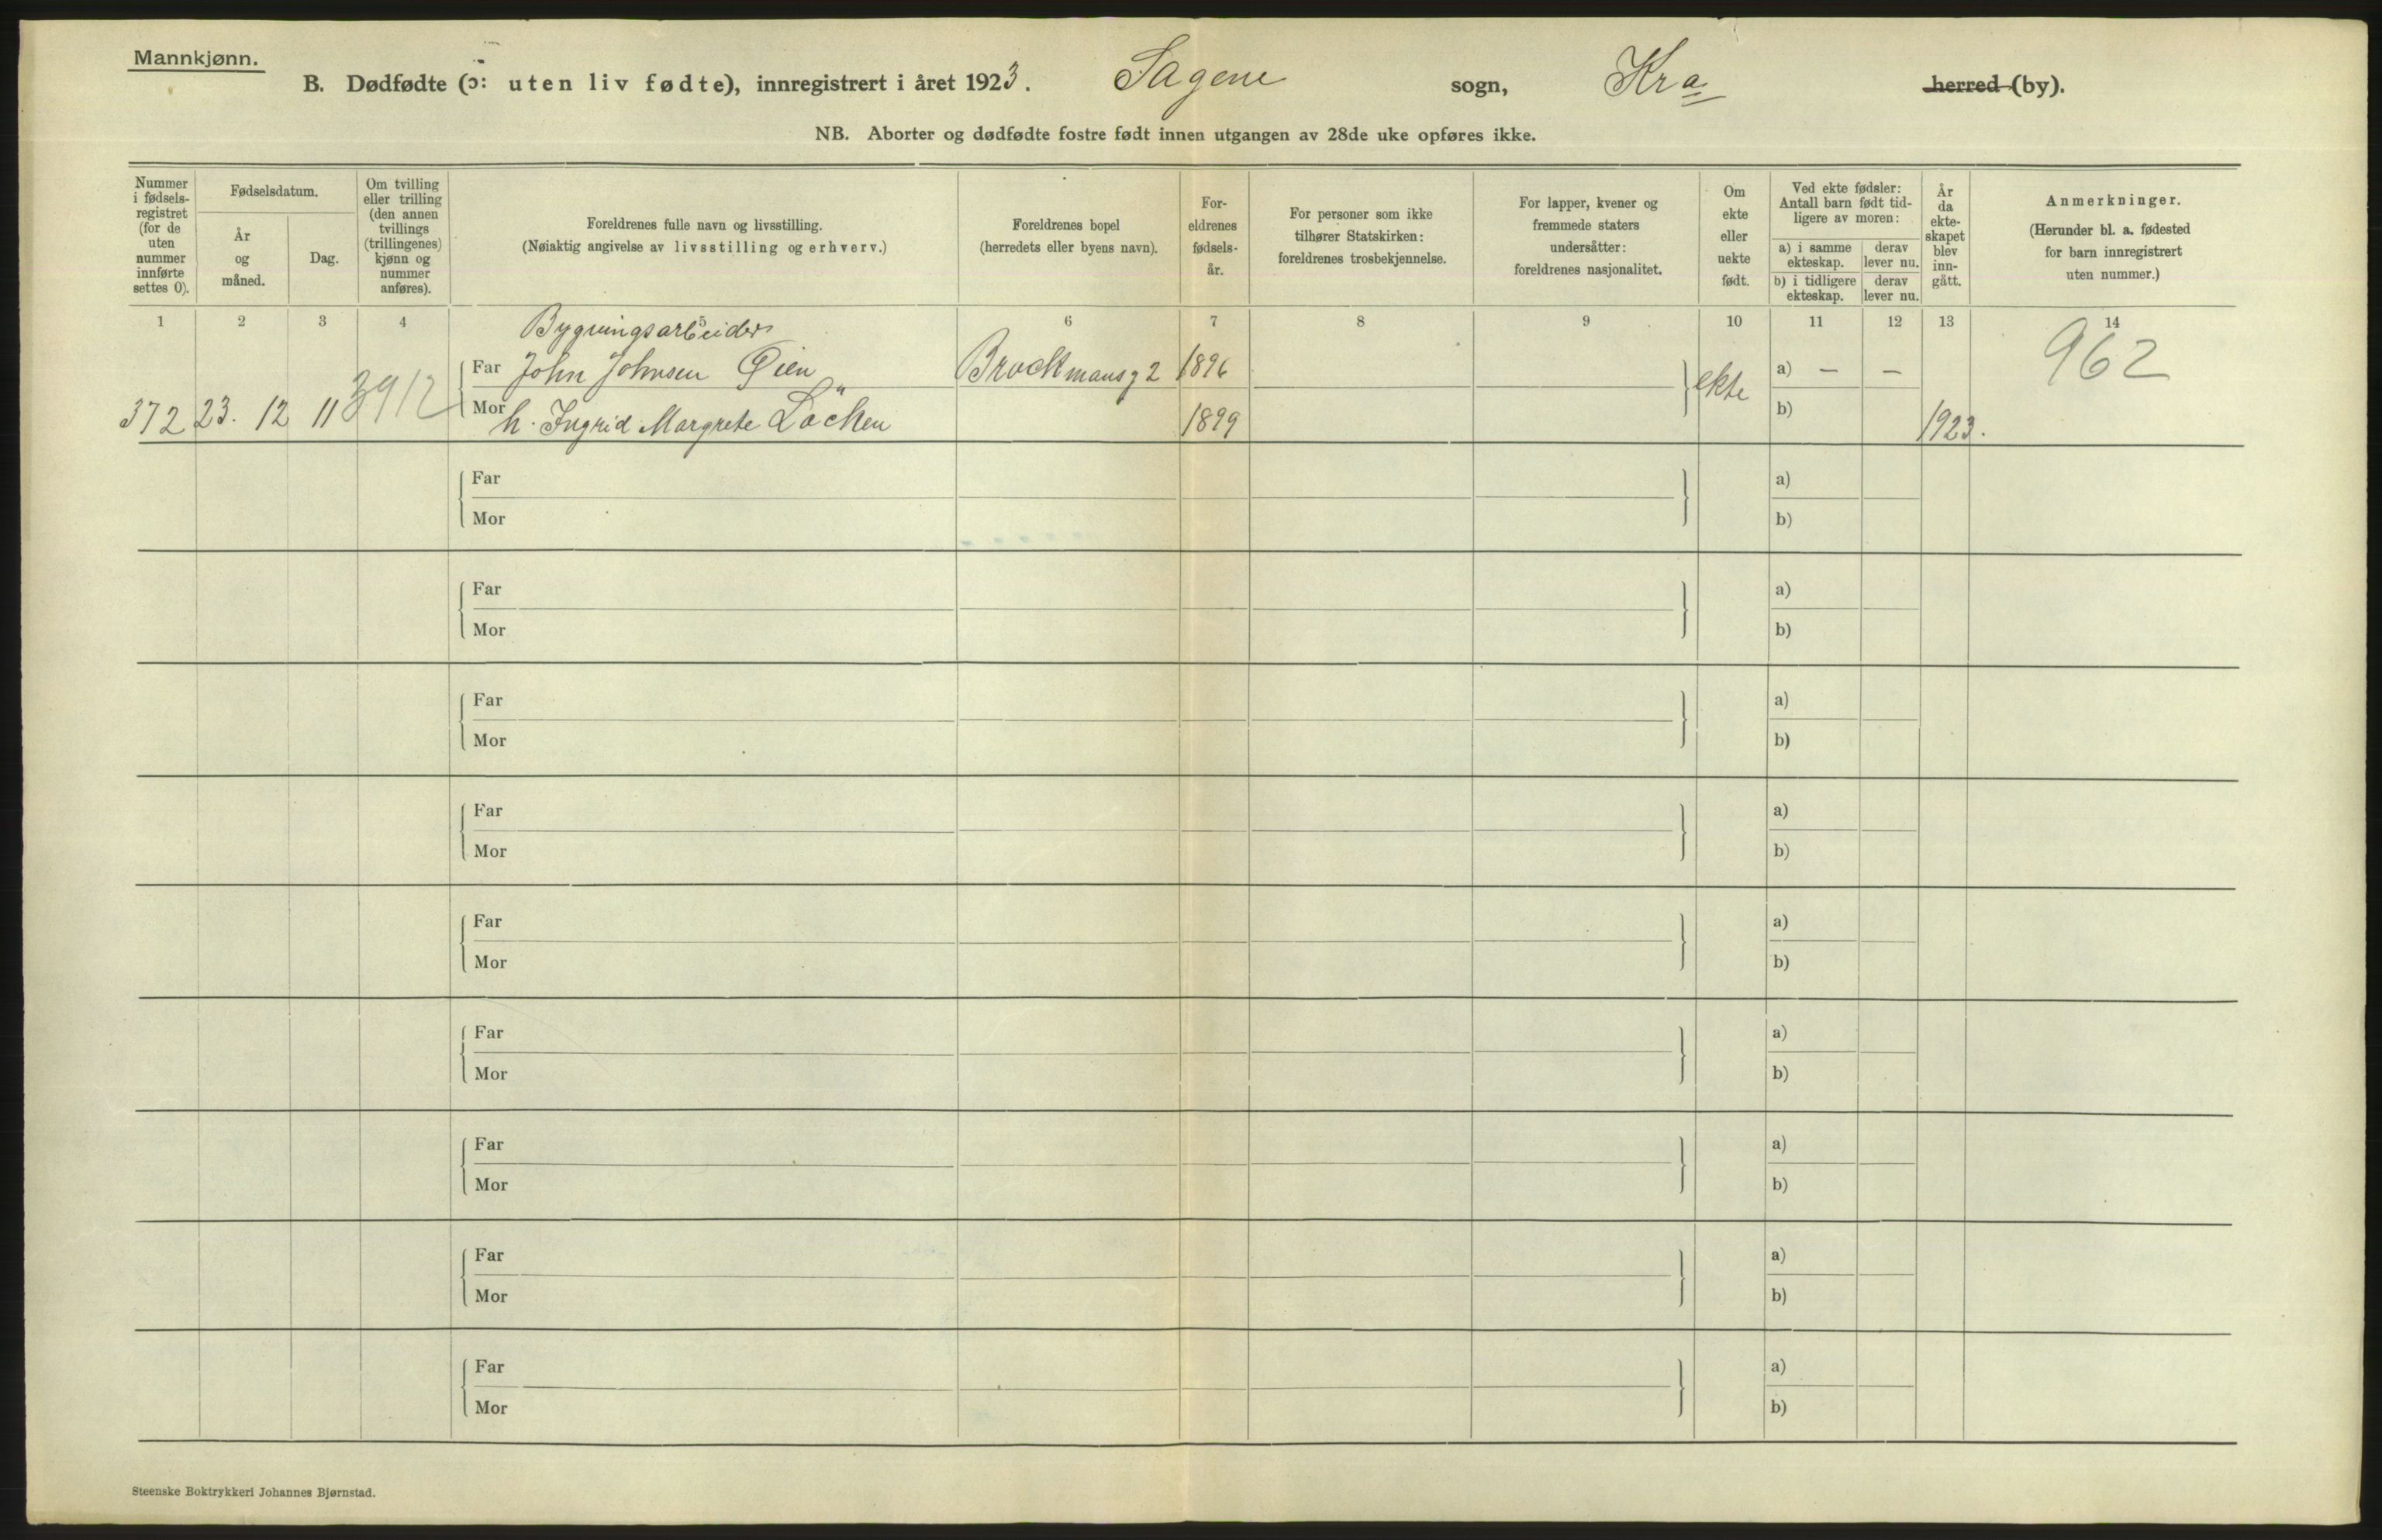 Mannkjønn.
B. Dødfødte (ɔ: uten liv fødte), innregistrert i året 1923. Sagene sogn, Kra herred (by).
NB. Aborter og dødfødte fostre født innen utgangen av 28de uke opføres ikke.
Nummer i fødsels-registret (for de uten nummer innførte settes 0).
Fødselsdatum.
År og måned.
Dag.
Om tvilling eller trilling (den annen tvillings (trillingenes) kjønn og nummer anføres).
Foreldrenes fulle navn og livsstilling.
(Nøiaktig angivelse av livsstilling og erhverv.)
Foreldrenes bopel
(herredets eller byens navn).
For-eldrenes fødsels-år.
For personer som ikke tilhører Statskirken: foreldrenes trosbekjennelse.
For lapper, kvener og fremmede staters undersåtter: foreldrenes nasjonalitet.
Om ekte eller uekte født.
Ved ekte fødsler: Antall barn født tid-ligere av moren:
a) i samme ekteskap. derav lever nu.
b) i tidligere ekteskap. derav lever nu.
År da ekte-skapet blev inn-gått.
Anmerkninger.
(Herunder bl. a. fødested for barn innregistrert uten nummer.)
1 2 3 4 5 6 7 8 9 10 11 12 13 14
Bygningsarbeider
Far John Johnsen Øien Brockmansg 2 1896 a) — — 962
372 23. 12 11 3912 Mor h. Ingrid Margrete Löcken 1899 ekte b) 1923.
Far a)
Mor b)
Far a)
Mor b)
Far a)
Mor b)
Far a)
Mor b)
Far a)
Mor b)
Far a)
Mor b)
Far a)
Mor b)
Far a)
Mor b)
Far a)
Mor b)
Steenske Boktrykkeri Johannes Bjørnstad.